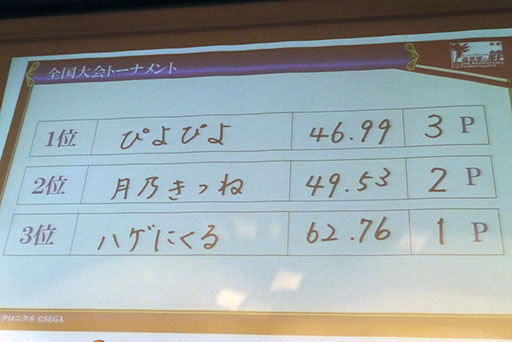 全国大会トーナメント
1位 ぴよぴよ 46.99 3 P
2位 月乃きつね 49.53 2 P
3位 ハゲにくる 62.76 1 P
クロニクル ©SEGA